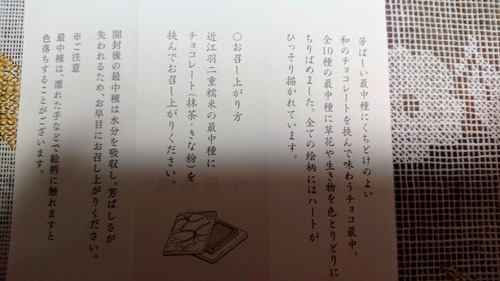 芳ばしい最中種にくちどけのよい
和のチョコレートを挟んで味わうチョコ最中。
全10種の最中種に草花や生き物を色とりどりに
ちりばめました。全ての絵柄にはハートが
ひっそり描かれています。
〇お召し上がり方
近江羽二重糯米の最中種に
チョコレート(抹茶・きな粉)を
挟んでお召し上がりください。
開封後の最中種は水分を吸収し、芳ばしさが
失われるため、お早目にお召し上がりください。
※ご注意
最中種は、濡れた手などで絵柄に触れますと
色落ちすることがございます。